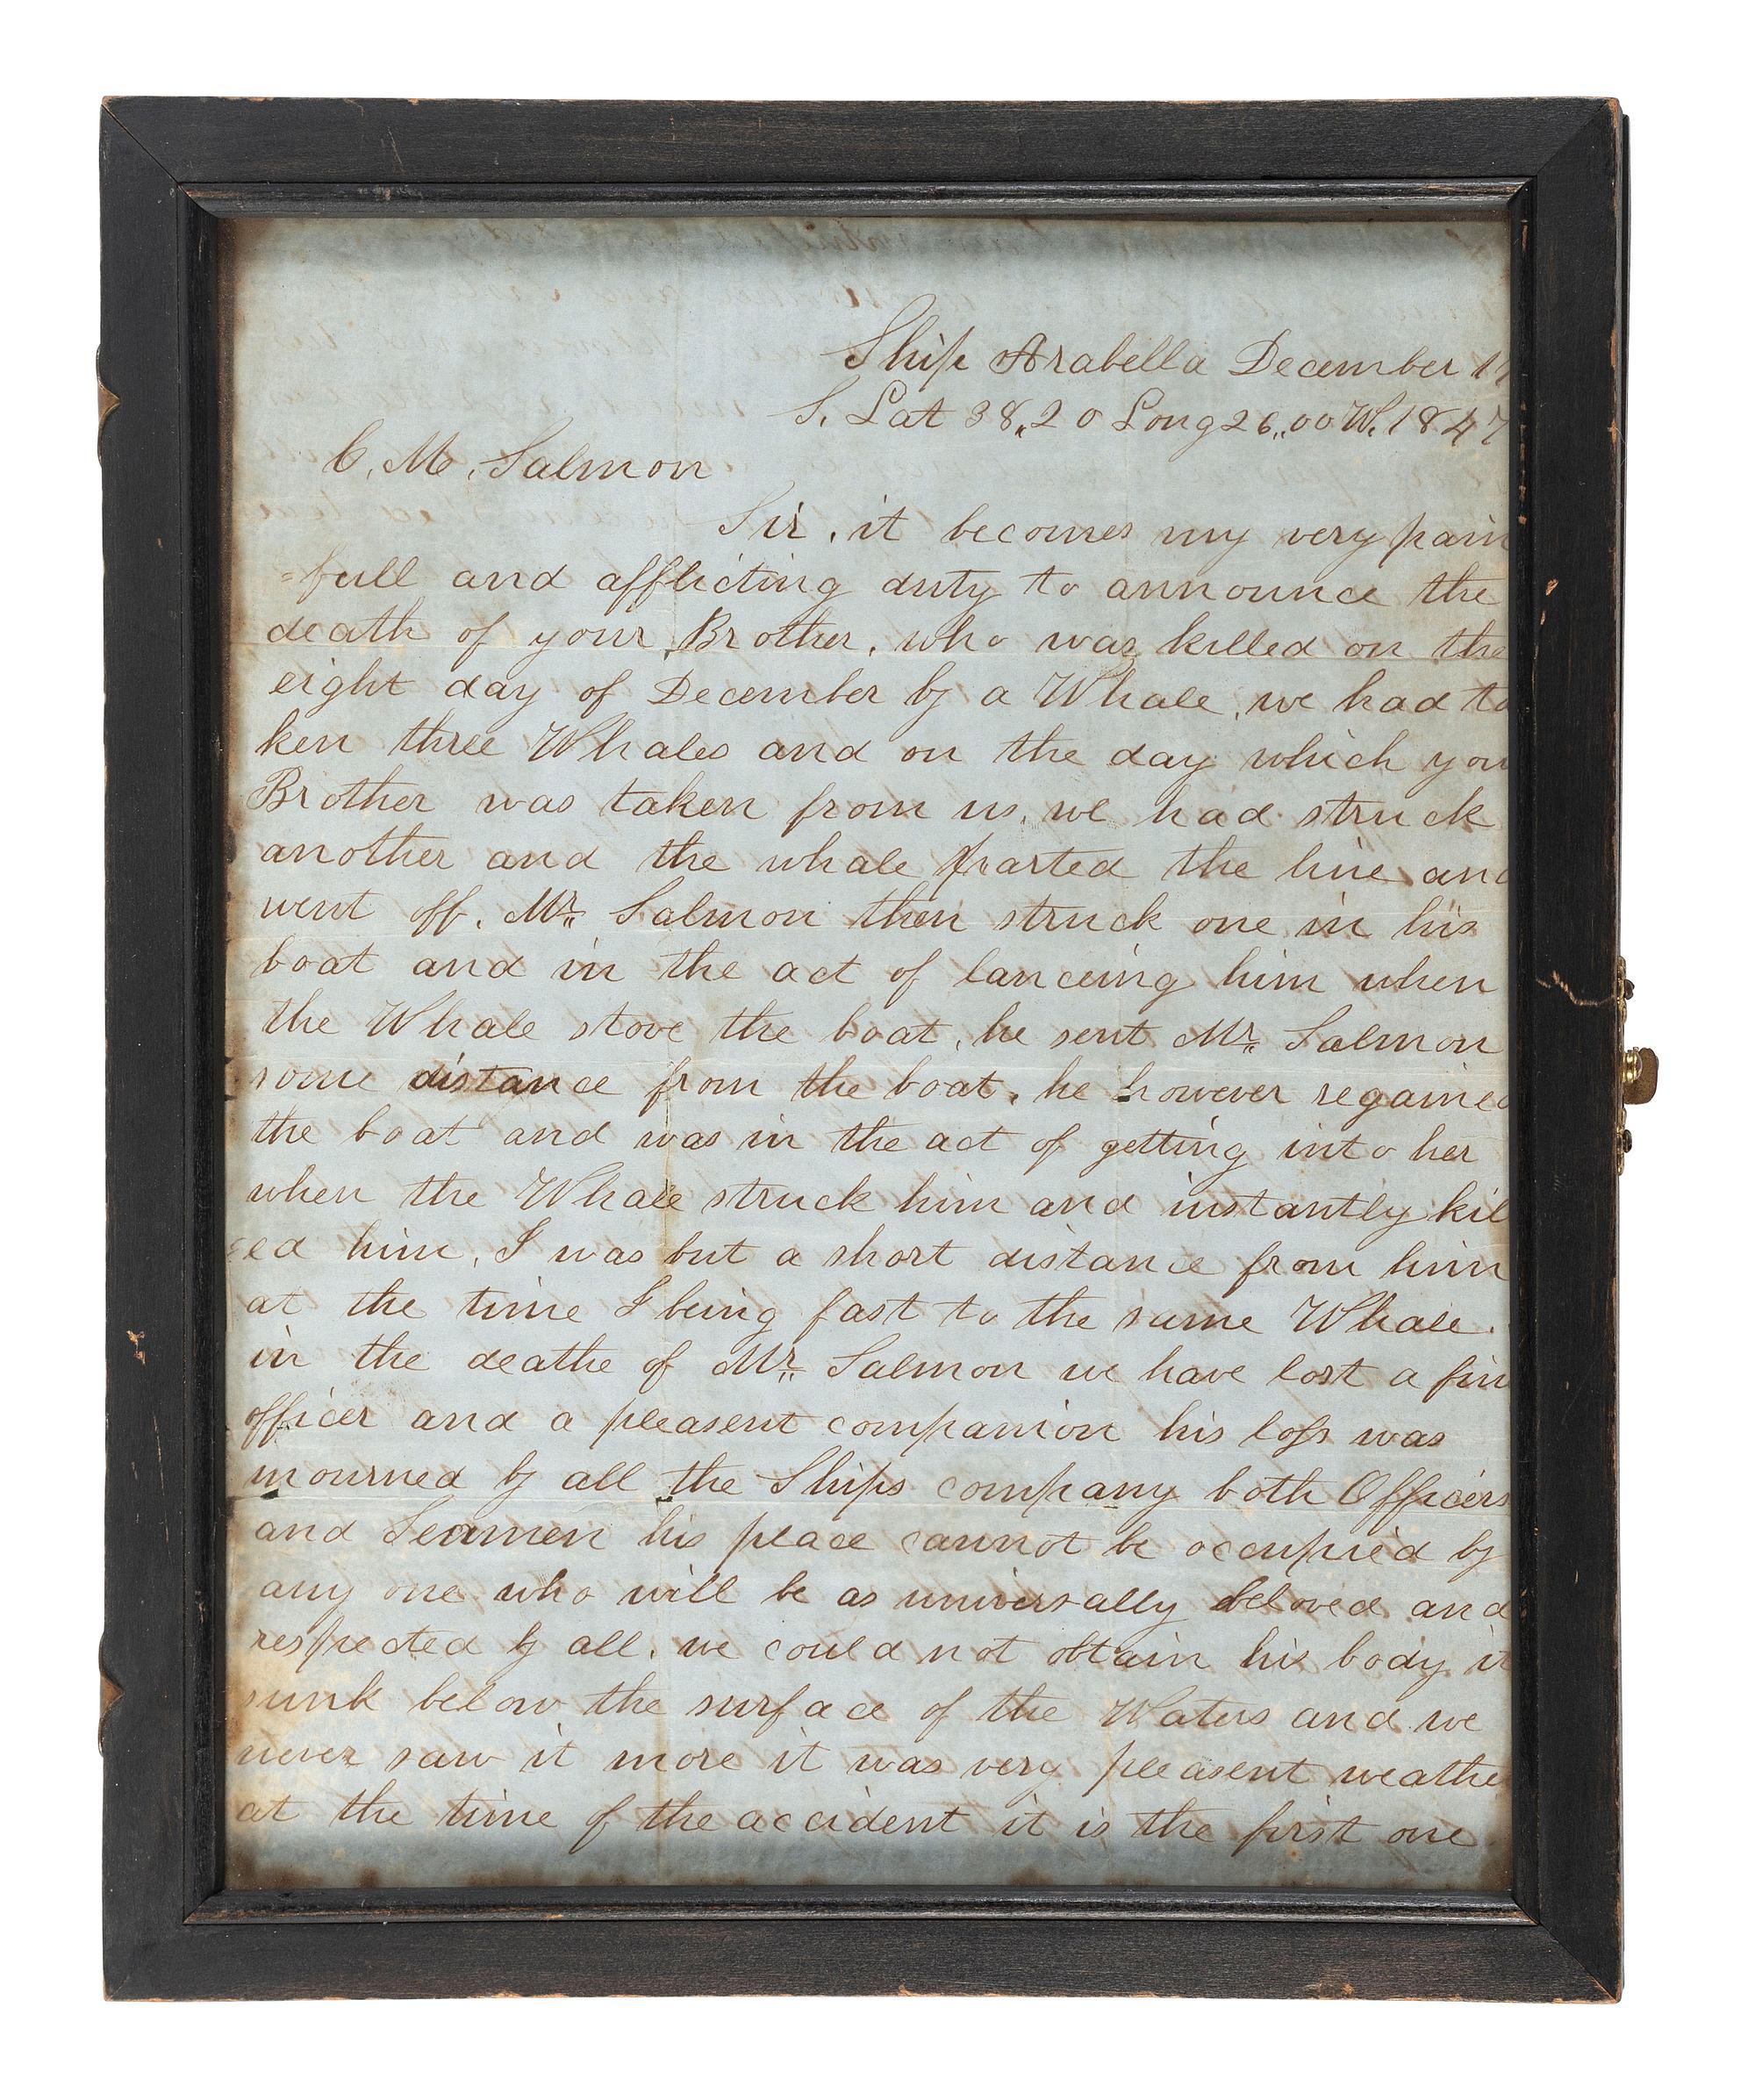 Ship Arabella December 1
S. Lat 38,,20 Long 26,,00 W. 1847
C. M. Salmon
Sir, it becomes my very pain
=full and afflicting duty to announce the
death of your Brother, who was killed on the
eight day of December by a Whale, we had ta
ken three Whales and on the day which you
Brother was taken from us, we had struck
another and the whale parted the line and
went off. Mr. Salmon then struck one in his
boat and in the act of lanceing him when
the Whale stove the boat, he sent Mr. Salmon
some distance from the boat, he however regained
the boat and was in the act of getting into her
when the Whale struck him and instantly kil
led him, I was but a short distance from him
at the time I being fast to the same Whale.
in the deathe of Mr. Salmon we have lost a fin
officer and a pleasent companion his loss was
mourned by all the Ships company both Officers
and Seamen his place cannot be occupied by
any one who will be as universally beloved and
respected by all. we could not obtain his body it
sunk below the surface of the Waters and we
never saw it more it was very pleasent weathe
at the time of the accident it is the first one